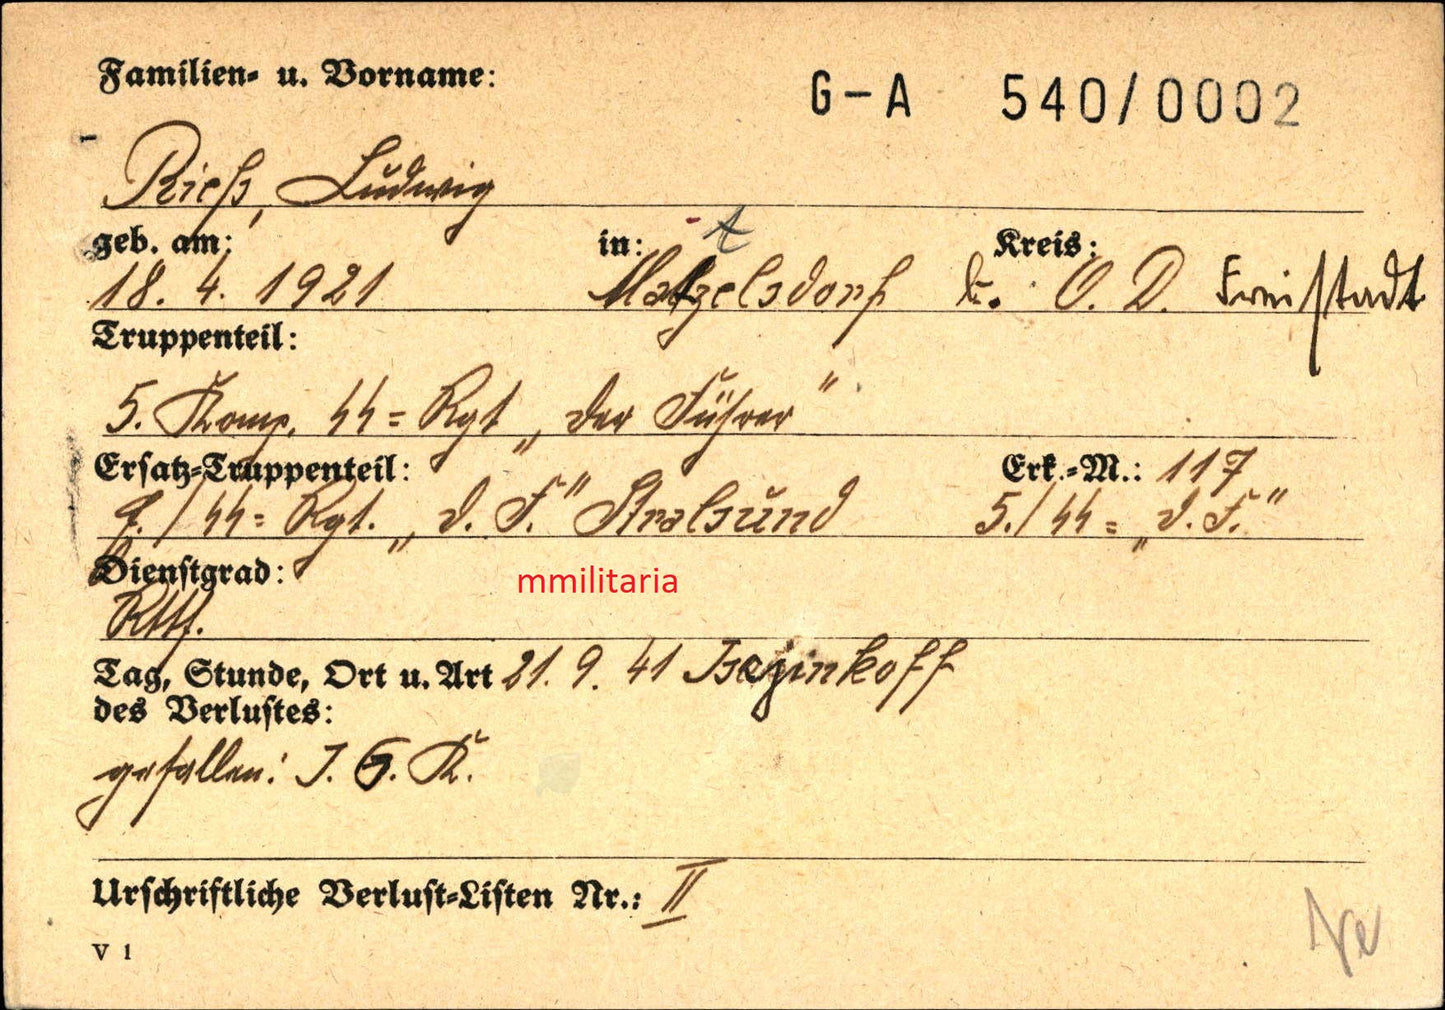 Familien- u. Vorname:
G-A 540/0002
Rieß, Ludwig
geb. am: in: t Kreis:
18. 4. 1921 Matzelsdorf b. O. D. Freistadt
Truppenteil:
5. Komp. SS = Rgt „der Führer"
Ersatz-Truppenteil: Erk.-M.: 117
E./SS = Rgt. „d. F." Stralsund 5./SS = „d. F."
Dienstgrad:
Rttf.
mmilitaria
Tag, Stunde, Ort u. Art 21. 9. 41
des Verlustes:
gefallen: I. G. K.
Urschriftliche Verlust-Listen Nr.: II
V 1